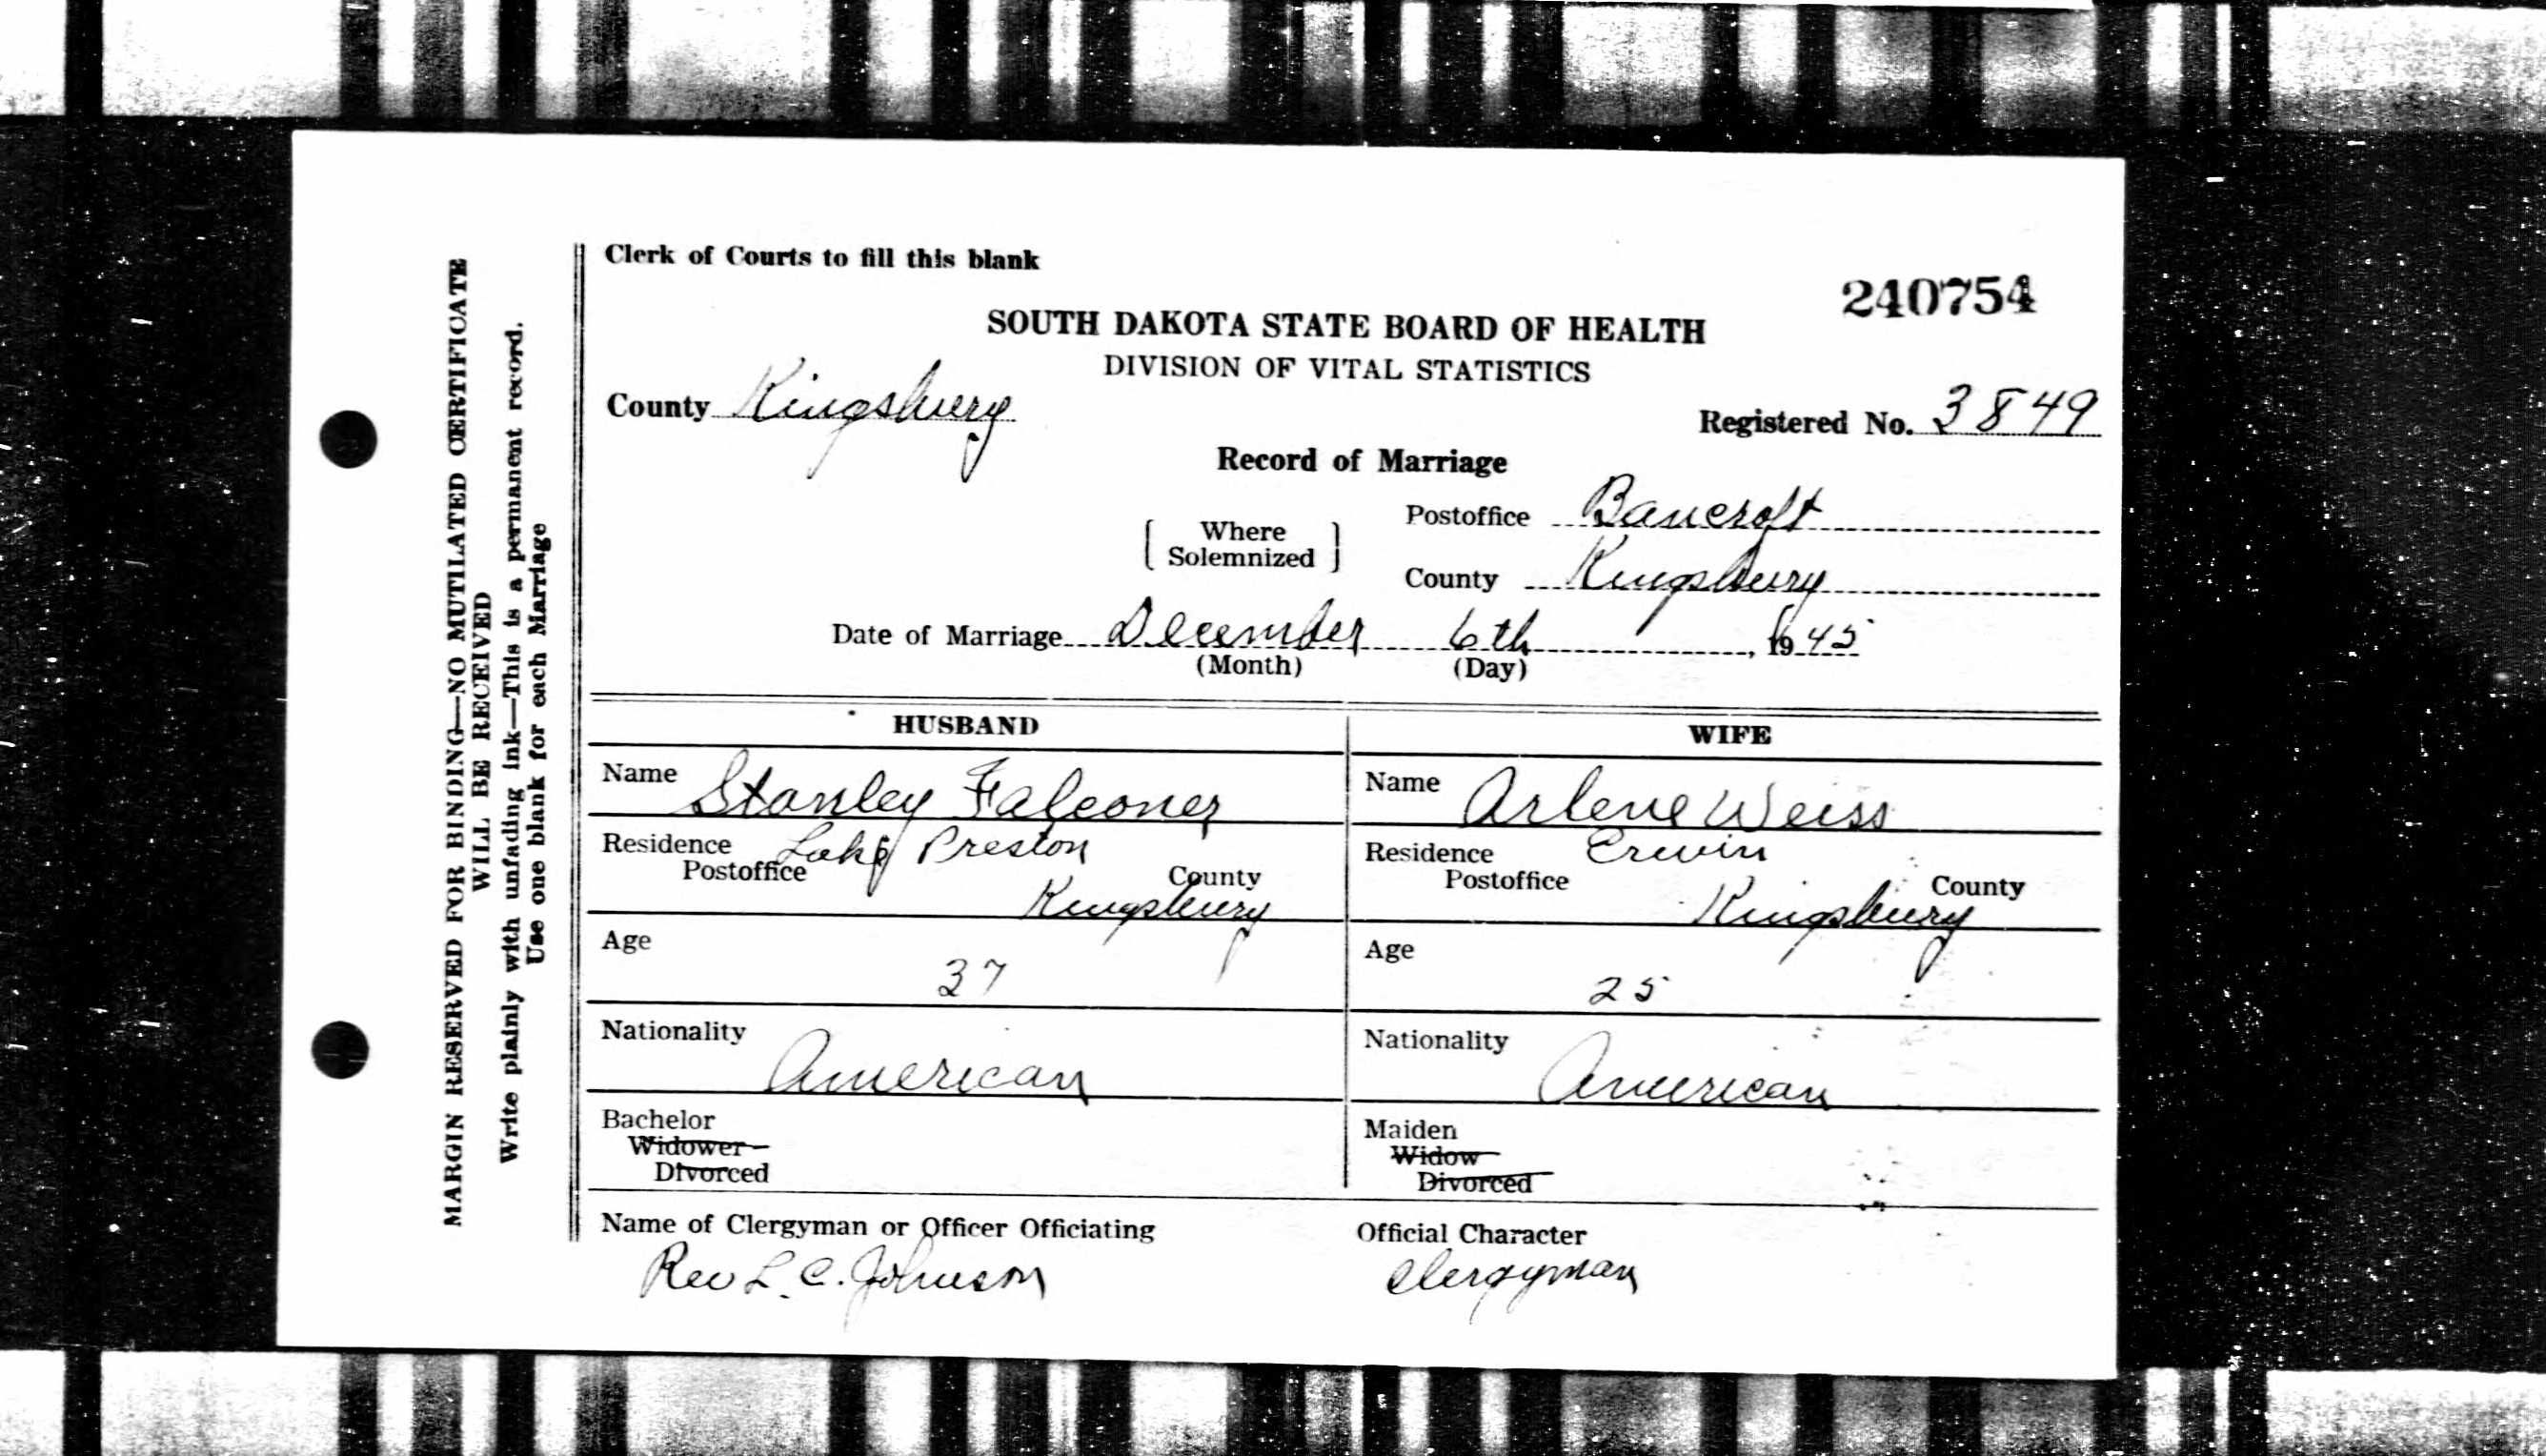 MARGIN RESERVED FOR BINDING—NO MUTILATED CERTIFICATE
WILL BE RECEIVED
Write plainly with unfading ink—This is a permanent record.
Use one blank for each Marriage
Clerk of Courts to fill this blank
240754
SOUTH DAKOTA STATE BOARD OF HEALTH
DIVISION OF VITAL STATISTICS
County Kingsbury
Registered No. 3849
Record of Marriage
Where Solemnized
Postoffice Bancroft
County Kingsbury
Date of Marriage December 6th, 1945
(Month) (Day)
HUSBAND
Name Stanley Falconer
Residence Lake Preston
Postoffice County
Kingsbury
Age
37
Nationality
American
Bachelor
Widower
Divorced
WIFE
Name Arlene Weiss
Residence Erwin
Postoffice County
Kingsbury
Age
25
Nationality
American
Maiden
Widow
Divorced
Name of Clergyman or Officer Officiating
Rev L. C. Johnson
Official Character
Clergyman